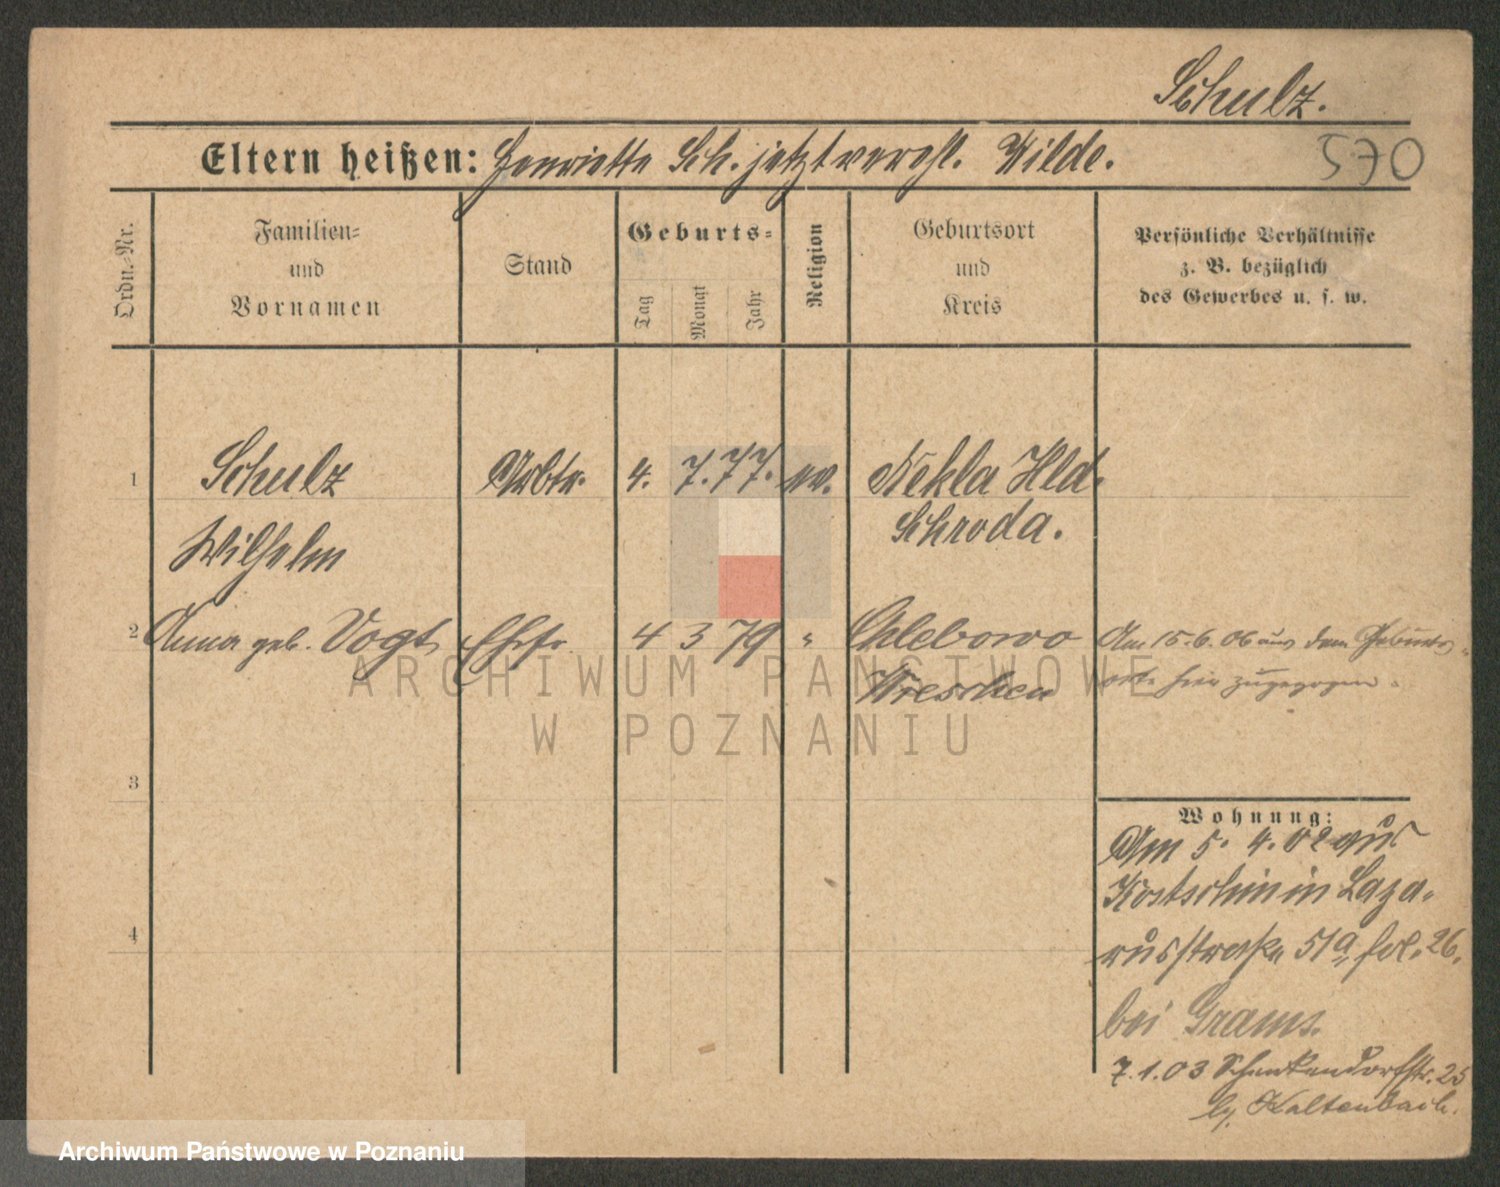 Schulz.
570
Eltern heißen: Henriette Sch. jetzt verehl. Wilde.
Ordn.-Nr.
Familien-
und
Vornamen
Stand
Geburts-
Tag
Monat
Jahr
Religion
Geburtsort
und
Kreis
Persönliche Verhältnisse
z. B. bezüglich
des Gewerbes u. s. w.
1 Schulz Arbtr. 4. 7. 77. ev. Nekla Hld.
Wilhelm Schroda.
2 Anna geb. Vogt Ehefr. 4 3 79 " Chlebowo Am 15.6.06 aus dem Geburts-
Wreschen orte hier zugezogen.
3
4
Wohnung:
Am 5. 4. 02 aus
Kostschin in Laza-
russtraße 51a, fol. 26.
bei Grams.
7.1.03 Schenkendorfstr. 25
bj. Kaltenbach.
ARCHIWUM PAŃSTWOWE
W POZNANIU
Archiwum Państwowe w Poznaniu